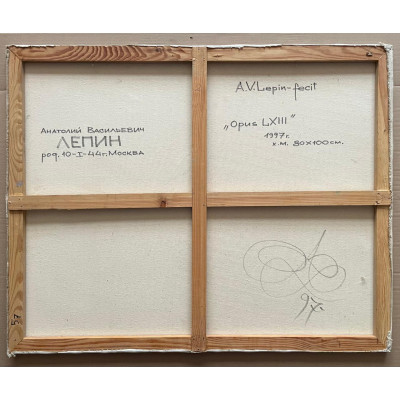 A.V.Lepin-fecit
„Opus LXIII"
1997г.
х.м. 80×100см.
Анатолий Васильевич
ЛЕПИН
род. 10-I-44г. Москва
97г.
57